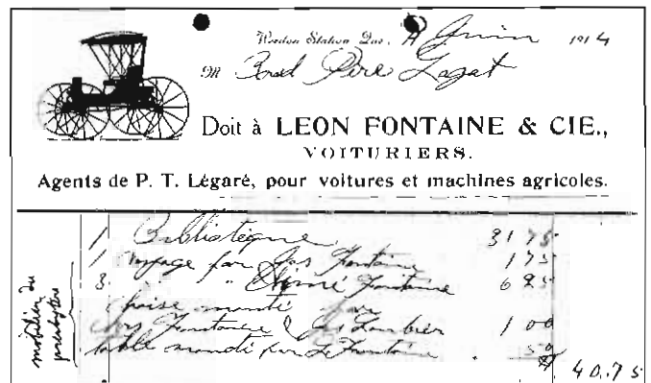 Weedon Station Que., Juin 1914
M Père
Doit à LEON FONTAINE & CIE.,
VOITURIERS.
Agents de P. T. Légaré, pour voitures et machines agricoles.
mobilier du presbytère
1 Bibliotèque 31 75
1 voyage par Jos Fontaine 1 75
3 " " Aimé Fontaine 6 25
monté par
Fontaine & 1 00
table monté par Fontaine 50
40.75